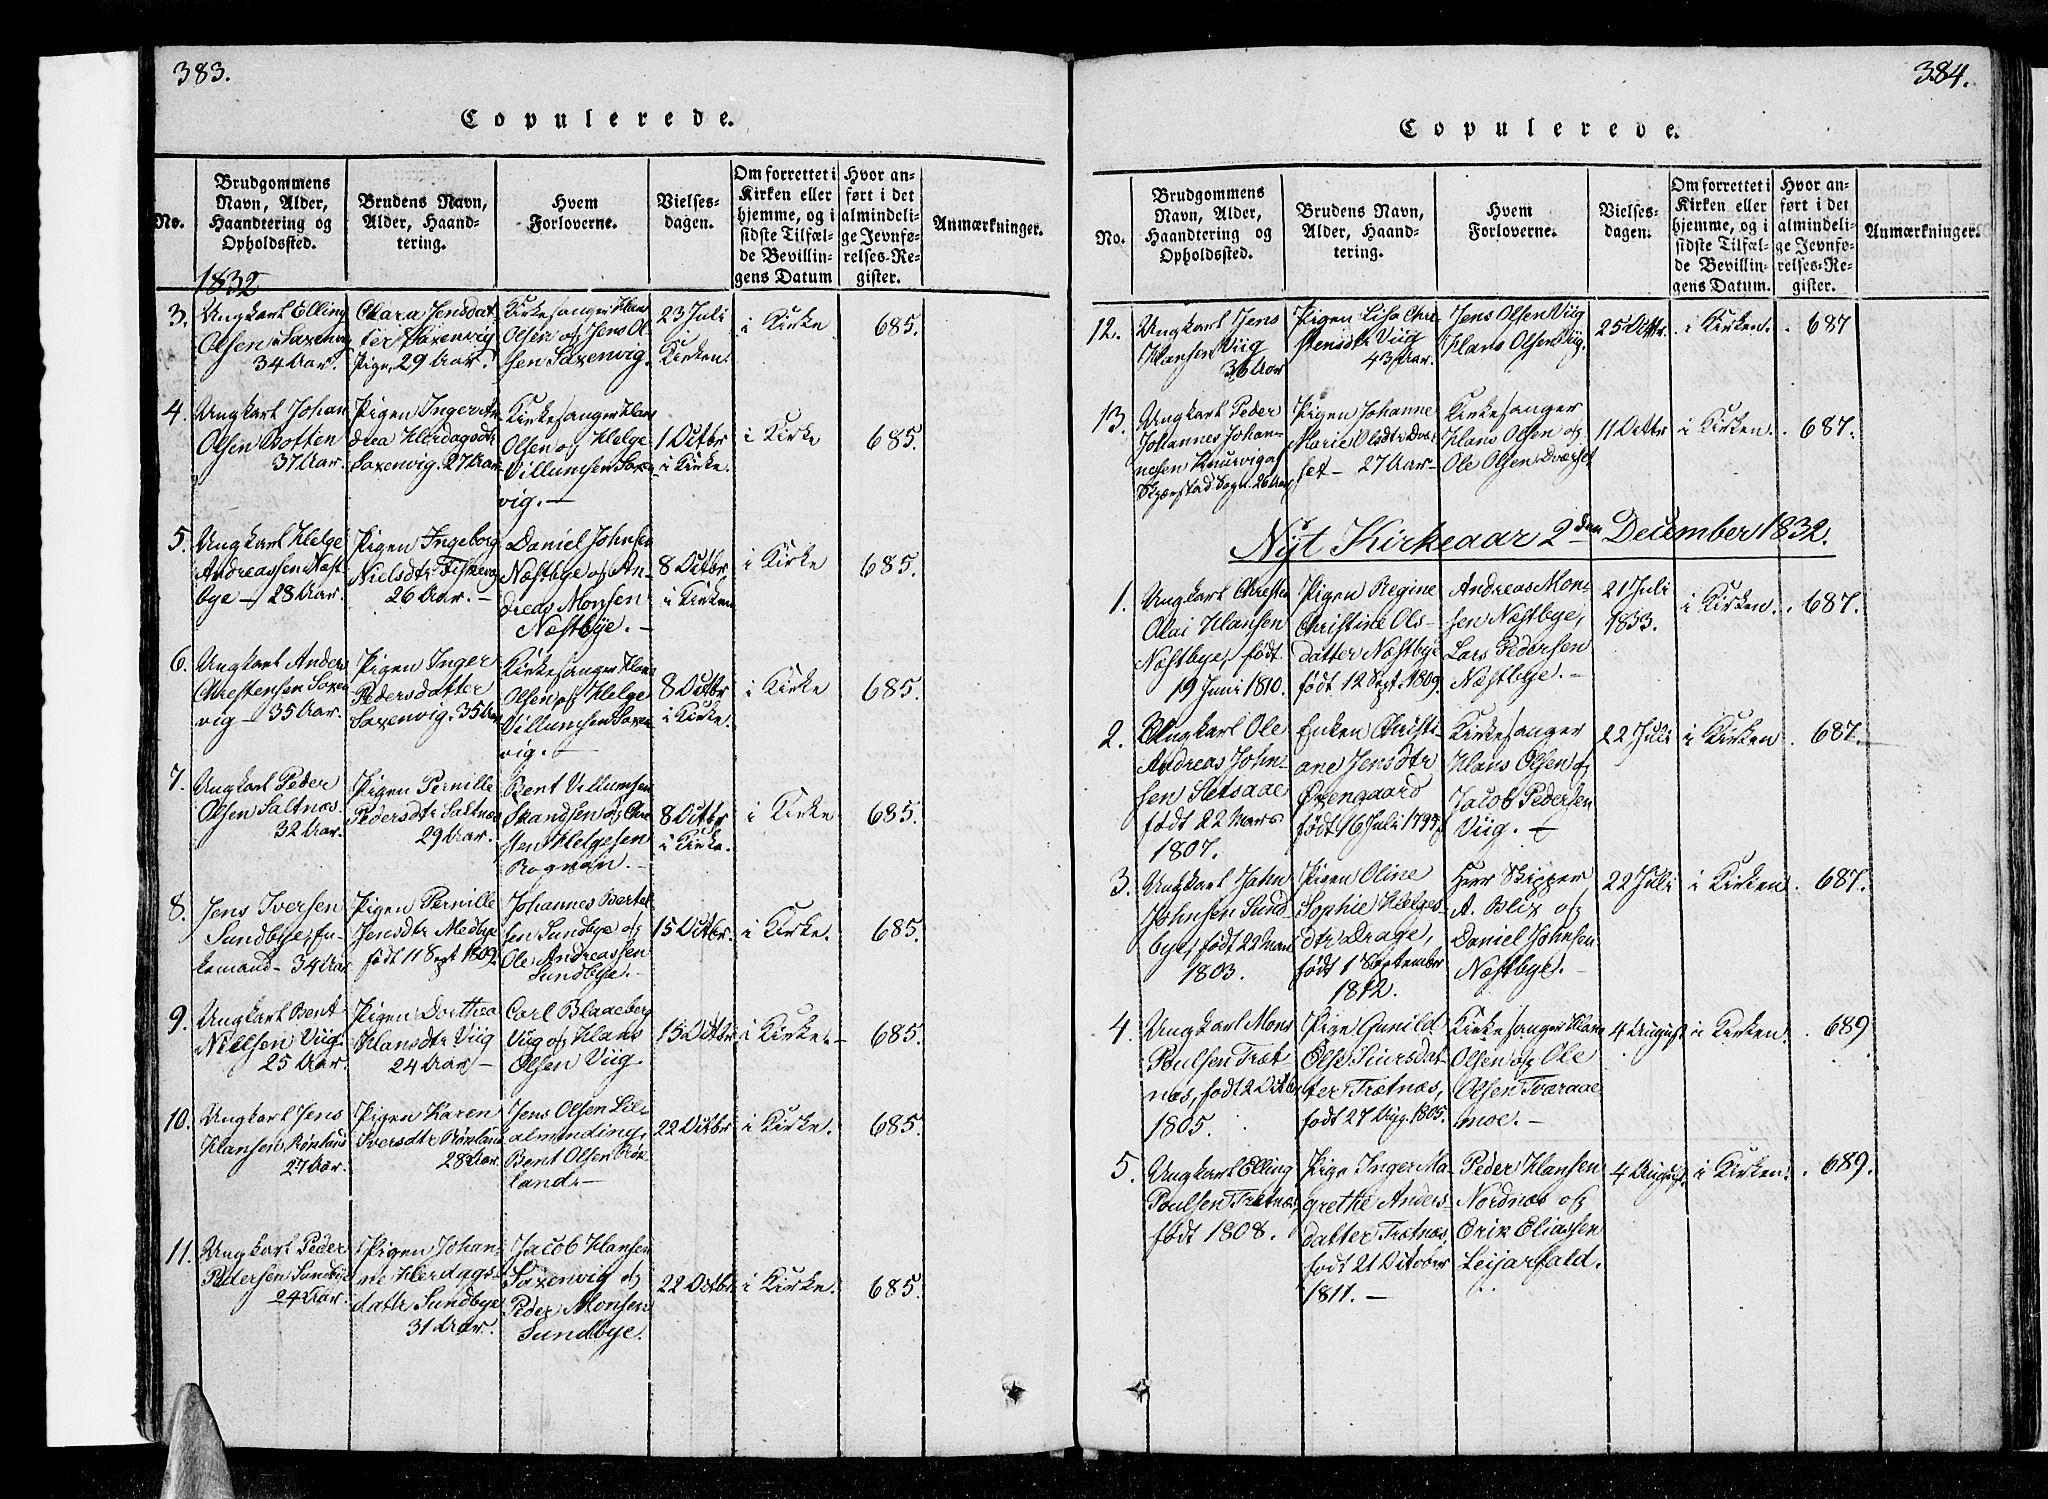 383.
Copulerede.
No.
Brudgommens
Navn, Alder,
Haandtering og
Opholdssted.
Brudens Navn,
Alder, Haand-
tering.
Hvem
Forloverne.
Vielses-
dagen.
Om forrettet i
Kirken eller
hjemme, og i
sidste Tilfæl-
de Bevillin-
gens Datum
Hvor an-
ført i det
almindeli-
ge Jevnfø-
relses-Re-
gister.
Anmærkninger.
1832
3. Ungkarl Elling
Olsen Saxenvig
34 Aar.
Clara Jensdat-
ter Saxenvig
Pige, 29 Aar.
Kirkesanger Hans
Olsen og Jens Ol-
sen Saxenvig.
23 Juli
Kirken
i Kirke
685.
4. Ungkarl Johan
Olsen Botten
37 Aar.
Pigen Inger An-
drea Herdagsdtr
Saxenvig 27 Aar
Kirkesanger Hans
Olsen og Helge
Villumsen Saxen-
vig. —
1 Octbr
i Kirke.
i Kirke
685.
5. Ungkarl Helge
Andreassen Næst-
bye — 28 Aar.
Pigen Ingeborg
Nielsdtr
26 Aar. —
Daniel Johnsen
Næstbye og An-
dreas Monsen
Næstbye. —
8 Octbr
i Kirken
i Kirke
685.
6. Ungkarl Anders
Chrestensen Saxen-
vig — 35 Aar.
Pigen Inger
Pedersdatter
Saxenvig. 35 Aar
Kirkesanger Hans
Olsen og Helge
Villumsen Saxen-
vig. —
8 Octbr
i Kirke.
i Kirke
685.
7. Ungkarl Peder
Olsen Saltnæs
32 Aar.
Pigen Pernille
Pedersdtr Saltnæs
29 Aar.
Bent Villumsen
Skandsen og Chre-
sten Helgesen
Rognan. —
8 Octbr
i Kirke.
i Kirke
685.
8. Jens Iversen
Sundbye, En-
kemand — 34 Aar
Pigen Pernille
Jensdtr Medbye
født 11 Sept 1809.
Johannes Bertel-
sen Sundbye og
Ole Andreassen
Sundbye. —
15 Octbr.
i Kirke.
685.
9. Ungkarl Bent
Nielsen Viig.
25 Aar.
Pigen Dorthea
Hansdtr Viig
24 Aar —
Carl Blaaeberg
Viig og Hans
Olsen Viig
15 Octbr.
i Kirke. —
685.
10. Ungkarl Jens
Hansen
27 Aar.
Pigen Karen
Iversdtr
28 Aar.
Jens Olsen Lil-
almending,
Bent Olsen
land. —
22 Octbr
i Kirke.
685.
11. Ungkarl Peder
Pedersen Sundbye
24 Aar.
Pigen Johan-
ne Herdags-
dattr Sundbye
31 Aar.
Jacob Hansen
Saxenvig og
Peder Monsen
Sundbye.
22 Octbr.
i Kirke.
685.
384.
Copulerede.
No.
Brudgommens
Navn, Alder,
Haandtering og
Opholdssted.
Brudens Navn,
Alder, Haand-
tering.
Hvem
Forloverne.
Vielses-
dagen.
Om forrettet i
Kirken eller
hjemme, og i
sidste Tilfæl-
de Bevillin-
gens Datum.
Hvor an-
ført i det
almindeli-
ge Jevnfø-
relses-Re-
gister.
Anmærkninger.
12. Ungkarl Jens
Hansen Viig
36 Aar
Pigen Lisa Chri-
stensdtr Viig
43 Aar.
Jens Olsen Viig
Hans Olsen Viig.
25 Octbr.
i Kirken.
687
13. Ungkarl Peder
Johannes Johan-
nesen
Skjerstad Sogn. 26 Aar
Pigen Johanne
Marie Olsdtr Dvær-
set — 27 Aar —
Kirkesanger
Hans Olsen og
Ole Olsen Dværset
11 Octbr
i Kirken.
687.
Nyt Kirkeaar 2den December 1832.
1. Ungkarl Chresten
Olai Hansen
Næstbye, født
19 Juni 1810.
Pigen Regine
Christine Ols-
datter Næstbye
født 12 Sept. 1809.
Andreas Mon-
sen Næstbye,
Lars Pedersen
Næstbye. —
21 Juli
1833.
i Kirken.
687.
2. Ungkarl Ole
Andreas John-
sen Setsaae
født 22 Mars
1807.
Enken Christi-
ane Jensdtr
Øxengaard
født 16 Juli 1797
Kirkesanger
Hans Olsen og
Jacob Pedersen
Viig. —
22 Juli
i Kirken
687.
3. Ungkarl John
Johnsen Sund-
bye, født 22 Mars
1803.
Pigen Oline
Sophie Helges-
dtr Drage,
født 1 September
1812.
Herr Skipper
A. Blix og
Daniel Johnsen
Næstbye. —
22 Juli
i Kirken
687.
4. Ungkarl Mons
Poulsen Træt-
næs, født 2 Octbr
1805.
Pige Gunild
Olse Siursdat-
ter Trætnæs,
født 27 Aug. 1805.
Kirkesanger Hans
Olsen og Ole
Olsen Tværaae-
moe. —
4 August
i Kirken
689
5. Ungkarl Elling
Poulsen Trætnæs,
født 1808.
Pige Inger Ma-
grethe Anders-
datter Trætnæs,
født 21 October
1811. —
Peder Hansen
Nordnæs og
Erik Eliassen
Leijarfald.
4 August.
i Kirken.
689.